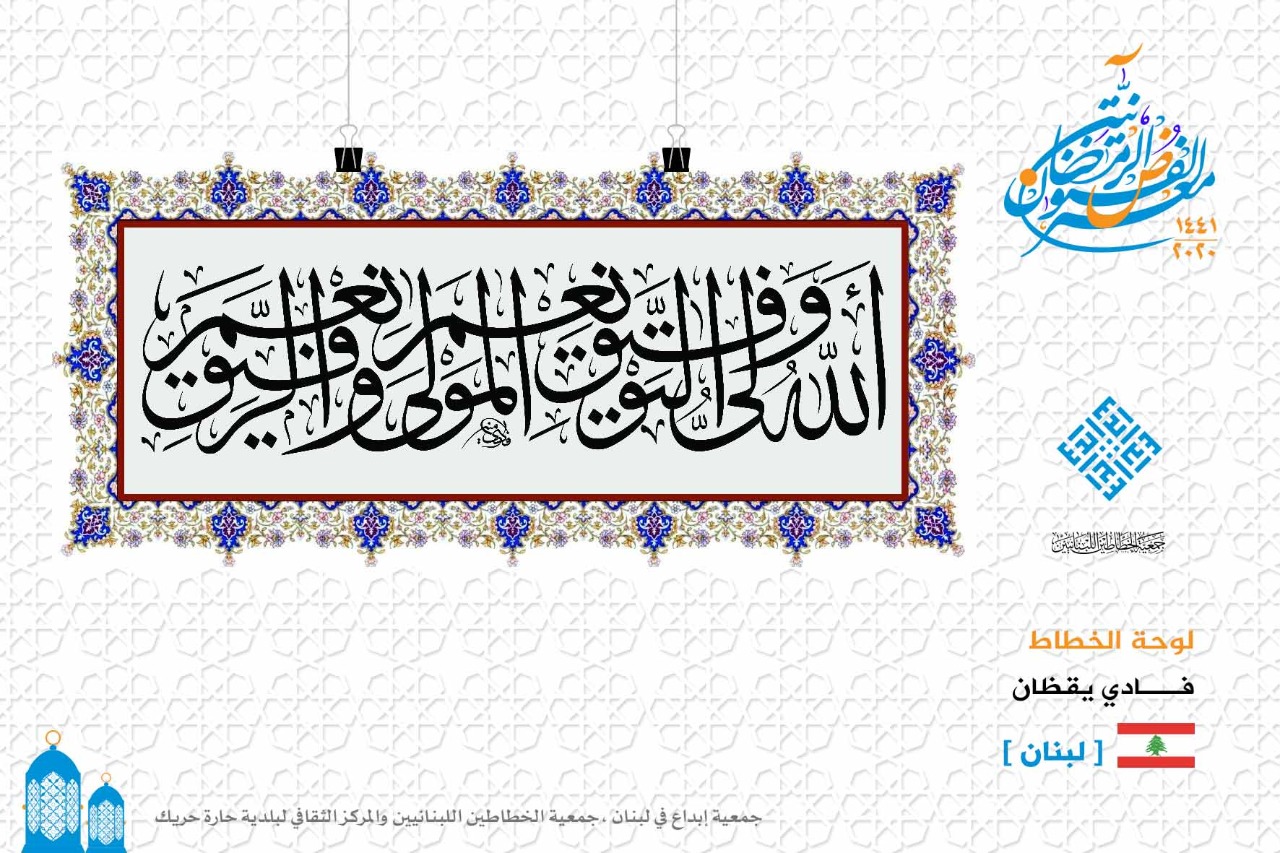 الله ولي التوفيق نعم المولى ونعم الرفيق
معرض الفنون الرمضانية
١٤٤١
٢٠٢٠
جمعية الخطاطين اللبنانيين
لوحة الخطاط
فـــادي يقظان
[ لبنان ]
جمعية إبداع في لبنان ، جمعية الخطاطين اللبنانيين والمركز الثقافي لبلدية حارة حريك